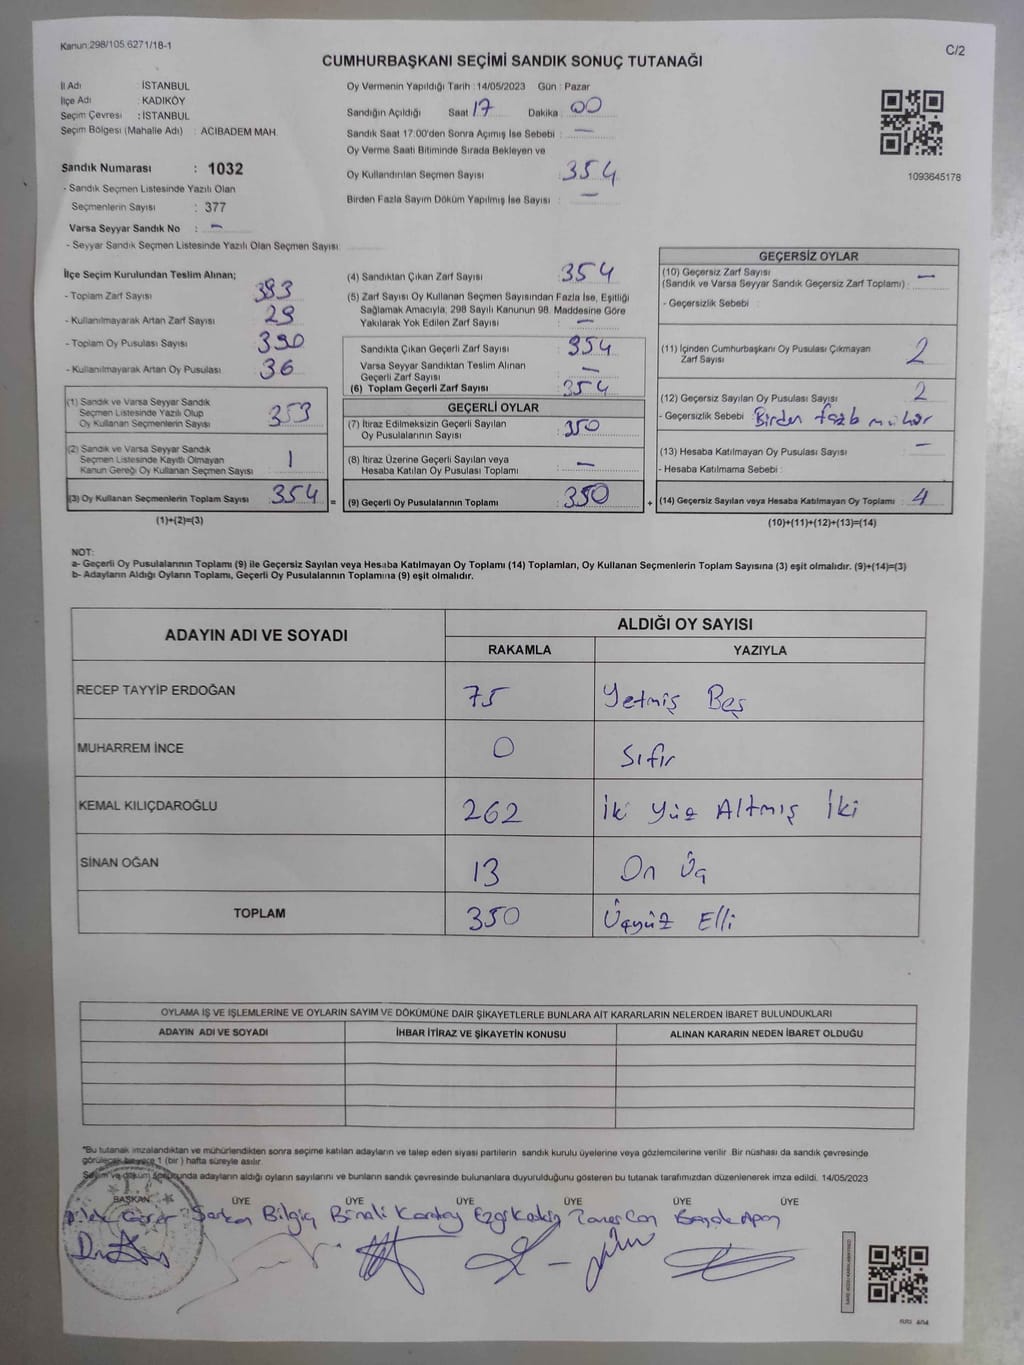 Kanun:298/105 6271/18-1
C/2
CUMHURBAŞKANI SEÇİMİ SANDIK SONUÇ TUTANAĞI
İl Adı : İSTANBUL
İlçe Adı : KADIKÖY
Seçim Çevresi : İSTANBUL
Seçim Bölgesi (Mahalle Adı) : ACIBADEM MAH.
Sandık Numarası : 1032
- Sandık Seçmen Listesinde Yazılı Olan
Seçmenlerin Sayısı : 377
Varsa Seyyar Sandık No : -
- Seyyar Sandık Seçmen Listesinde Yazılı Olan Seçmen Sayısı:
Oy Vermenin Yapıldığı Tarih : 14/05/2023 Gün : Pazar
Sandığın Açıldığı Saat 17 Dakika : 00
Sandık Saat 17:00'den Sonra Açımış İse Sebebi : -
Oy Verme Saati Bitiminde Sırada Bekleyen ve
Oy Kullandırılan Seçmen Sayısı : 354
Birden Fazla Sayım Döküm Yapılmış İse Sayısı : -
1093645178
İlçe Seçim Kurulundan Teslim Alınan;
- Toplam Zarf Sayısı : 383
- Kullanılmayarak Artan Zarf Sayısı : 29
- Toplam Oy Pusulası Sayısı : 390
- Kullanılmayarak Artan Oy Pusulası : 36
(1) Sandık ve Varsa Seyyar Sandık
Seçmen Listesinde Yazılı Olup
Oy Kullanan Seçmenlerin Sayısı : 353
(2) Sandık ve Varsa Seyyar Sandık
Seçmen Listesinde Kayıtlı Olmayan
Kanun Gereği Oy Kullanan Seçmen Sayısı : 1
(3) Oy Kullanan Seçmenlerin Toplam Sayısı : 354
(1)+(2)=(3)
(4) Sandıktan Çıkan Zarf Sayısı : 354
(5) Zarf Sayısı Oy Kullanan Seçmen Sayısından Fazla İse, Eşitliği
Sağlamak Amacıyla; 298 Sayılı Kanunun 98. Maddesine Göre
Yakılarak Yok Edilen Zarf Sayısı : -
Sandıkta Çıkan Geçerli Zarf Sayısı : 354
Varsa Seyyar Sandıktan Teslim Alınan
Geçerli Zarf Sayısı :
(6) Toplam Geçerli Zarf Sayısı : 354
GEÇERLİ OYLAR
(7) İtiraz Edilmeksizin Geçerli Sayılan
Oy Pusulalarının Sayısı : 350
(8) İtiraz Üzerine Geçerli Sayılan veya
Hesaba Katılan Oy Pusulası Toplamı : -
=
(9) Geçerli Oy Pusulalarının Toplamı : 350
+
GEÇERSİZ OYLAR
(10) Geçersiz Zarf Sayısı
(Sandık ve Varsa Seyyar Sandık Geçersiz Zarf Toplamı) : -
- Geçersizlik Sebebi :
(11) İçinden Cumhurbaşkanı Oy Pusulası Çıkmayan
Zarf Sayısı 2
(12) Geçersiz Sayılan Oy Pusulası Sayısı : 2
- Geçersizlik Sebebi : Birden fazla mühür
(13) Hesaba Katılmayan Oy Pusulası Sayısı : -
- Hesaba Katılmama Sebebi :
(14) Geçersiz Sayılan veya Hesaba Katılmayan Oy Toplamı : 4
(10)+(11)+(12)+(13)=(14)
NOT:
a- Geçerli Oy Pusulalarının Toplamı (9) ile Geçersiz Sayılan veya Hesaba Katılmayan Oy Toplamı (14) Toplamları, Oy Kullanan Seçmenlerin Toplam Sayısına (3) eşit olmalıdır. (9)+(14)=(3)
b- Adayların Aldığı Oyların Toplamı, Geçerli Oy Pusulalarının Toplamına (9) eşit olmalıdır.
ADAYIN ADI VE SOYADI ALDIĞI OY SAYISI
RAKAMLA YAZIYLA
RECEP TAYYİP ERDOĞAN 75 Yetmiş Beş
MUHARREM İNCE 0 Sıfır
KEMAL KILIÇDAROĞLU 262 İki Yüz Altmış İki
SİNAN OĞAN 13 On Üç
TOPLAM 350 Üçyüz Elli
OYLAMA İŞ VE İŞLEMLERİNE VE OYLARIN SAYIM VE DÖKÜMÜNE DAİR ŞİKAYETLERLE BUNLARA AİT KARARLARIN NELERDEN İBARET BULUNDUKLARI
ADAYIN ADI VE SOYADI İHBAR İTİRAZ VE ŞİKAYETİN KONUSU ALINAN KARARIN NEDEN İBARET OLDUĞU
*Bu tutanak imzalandıktan ve mühürlendikten sonra seçime katılan adayların ve talep eden siyasi partilerin sandık kurulu üyelerine veya gözlemcilerine verilir. Bir nüshası da sandık çevresinde
görülecek bir yere 1 (bir) hafta süreyle asılır.
Sayım ve döküm sonucunda adayların aldığı oyların sayılarını ve bunların sandık çevresinde bulunanlara duyurulduğunu gösteren bu tutanak tarafımızdan düzenlenerek imza edildi. 14/05/2023
BAŞKAN ÜYE ÜYE ÜYE ÜYE ÜYE ÜYE
Serkan Bilgiç Binali Taner Can